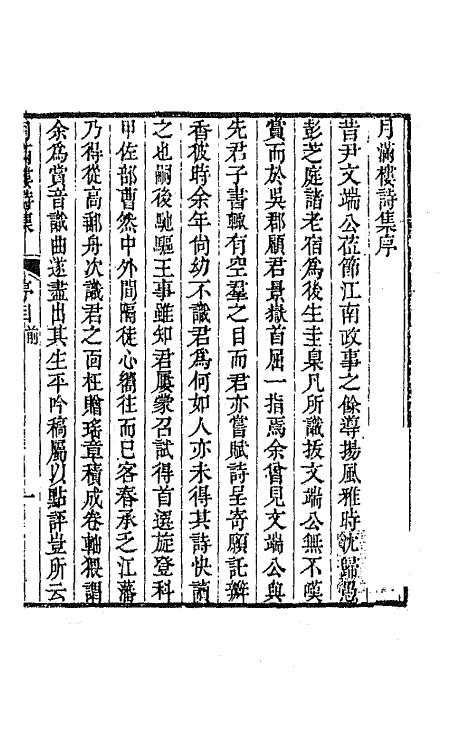 月滿樓詩集序
昔尹文端公莅節江南政事之餘導揚風雅時沈歸愚
彭芝庭諸老宿爲後生圭臬凡所識拔文端公無不嘆
賞而於吳郡顧君景嶽首屈一指焉余曾見文端公與
先君子書輒有空羣之目而君亦嘗賦詩呈寄願託瓣
香彼時余年尙幼不識君爲何如人亦未得其詩快讀
之也嗣後馳驅王事雖知君屢蒙召試得首選旋登科
甲佐部曹然中外間隔徒心嚮往而已客春承乏江藩
乃得從高郵舟次識君之面枉贈瑤章積成卷軸猥謂
余爲賞音識曲遂盡出其生平吟稿屬以點評豈所云
月滿樓詩集 序目 前 一